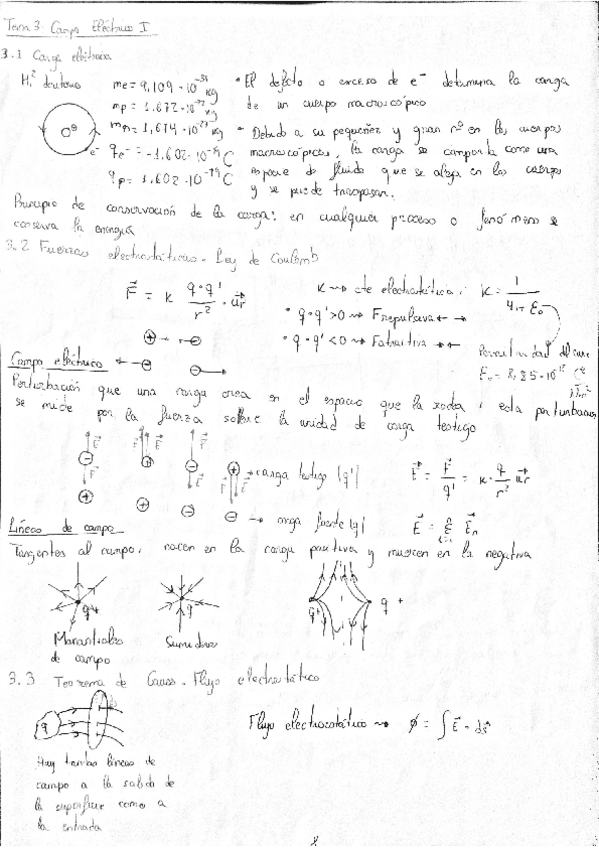 Tema 3: Campo Eléctrico I
3.1 Carga eléctrica
H₁² deuterio
me = 9,109·10⁻³¹ kg
mp = 1,672·10⁻²⁷ kg
mn = 1,674·10⁻²⁷ kg
e⁻
qe⁻ = -1,602·10⁻¹⁹ C
qp = 1,602·10⁻¹⁹ C
• El defecto o exceso de e⁻ determina la carga
de un cuerpo macroscópico
• Debido a su pequeñez y gran nº en los cuerpos
macroscópicos, la carga se comporta como una
especie de fluido que se aloja en los cuerpos
y se puede traspasar.
Principio de conservación de la carga: en cualquier proceso o fenómeno se
conserva la energía
3.2 Fuerzas electrostáticas. Ley de Coulomb
F = K q·q' / r² · ur
K ⇝ cte electrostática; K = 1 / 4π ε₀
• q·q' > 0 ⇝ F repulsiva ← →
• q·q' < 0 ⇝ F atractiva → ←
Permitividad del
Campo eléctrico
Perturbación que una carga crea en el espacio que la rodea; esta perturbación
se mide por la fuerza sobre la unidad de carga testigo
→ carga testigo |q'|
E = F / q' = K · q / r² ur
→ carga fuente |q|
Líneas de campo
Tangentes al campo, nacen en la carga positiva y mueren en la negativa
q+
q⁻
q+
q +
Manantiales
de campo
Sumideros
3.3 Teorema de Gauss. Flujo electrostático
q
Flujo electrostático ⇝ ϕ = ∫ E · ds
Hay tantas líneas de
campo a la salida de
la superficie como a
la entrada